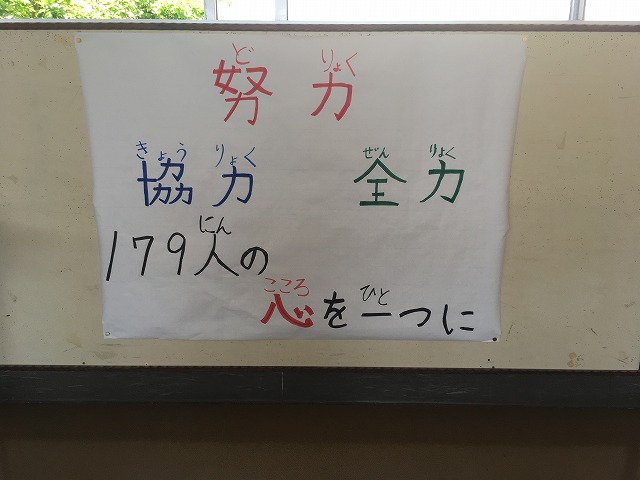 どりょく
努力
きょうりょく ぜんりょく
協力 全力
にん
179人の
こころ ひと
心を一つに